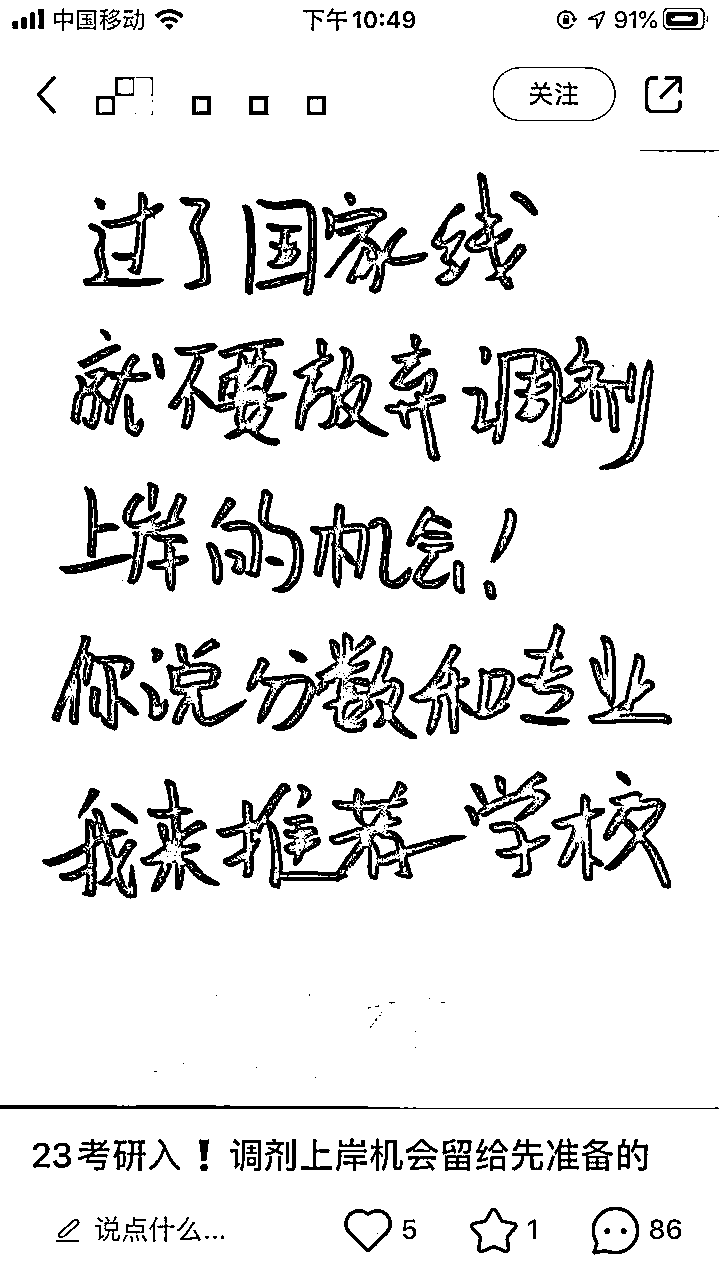 中国移动 下午10:49 91%
关注
过了国家线
就不要放弃调剂
上岸的机会!
你说分数和专业
我来推荐学校
23考研入❗调剂上岸机会留给先准备的
说点什么... 5 1 86